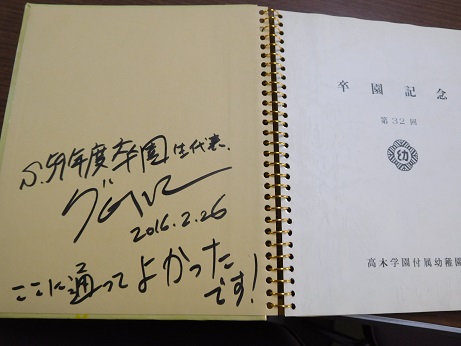 S.59年度卒園生代表.
2016.2.26
ここに通ってよかった
です!
卒園記念
第32回
幼
高木学園付属幼稚園